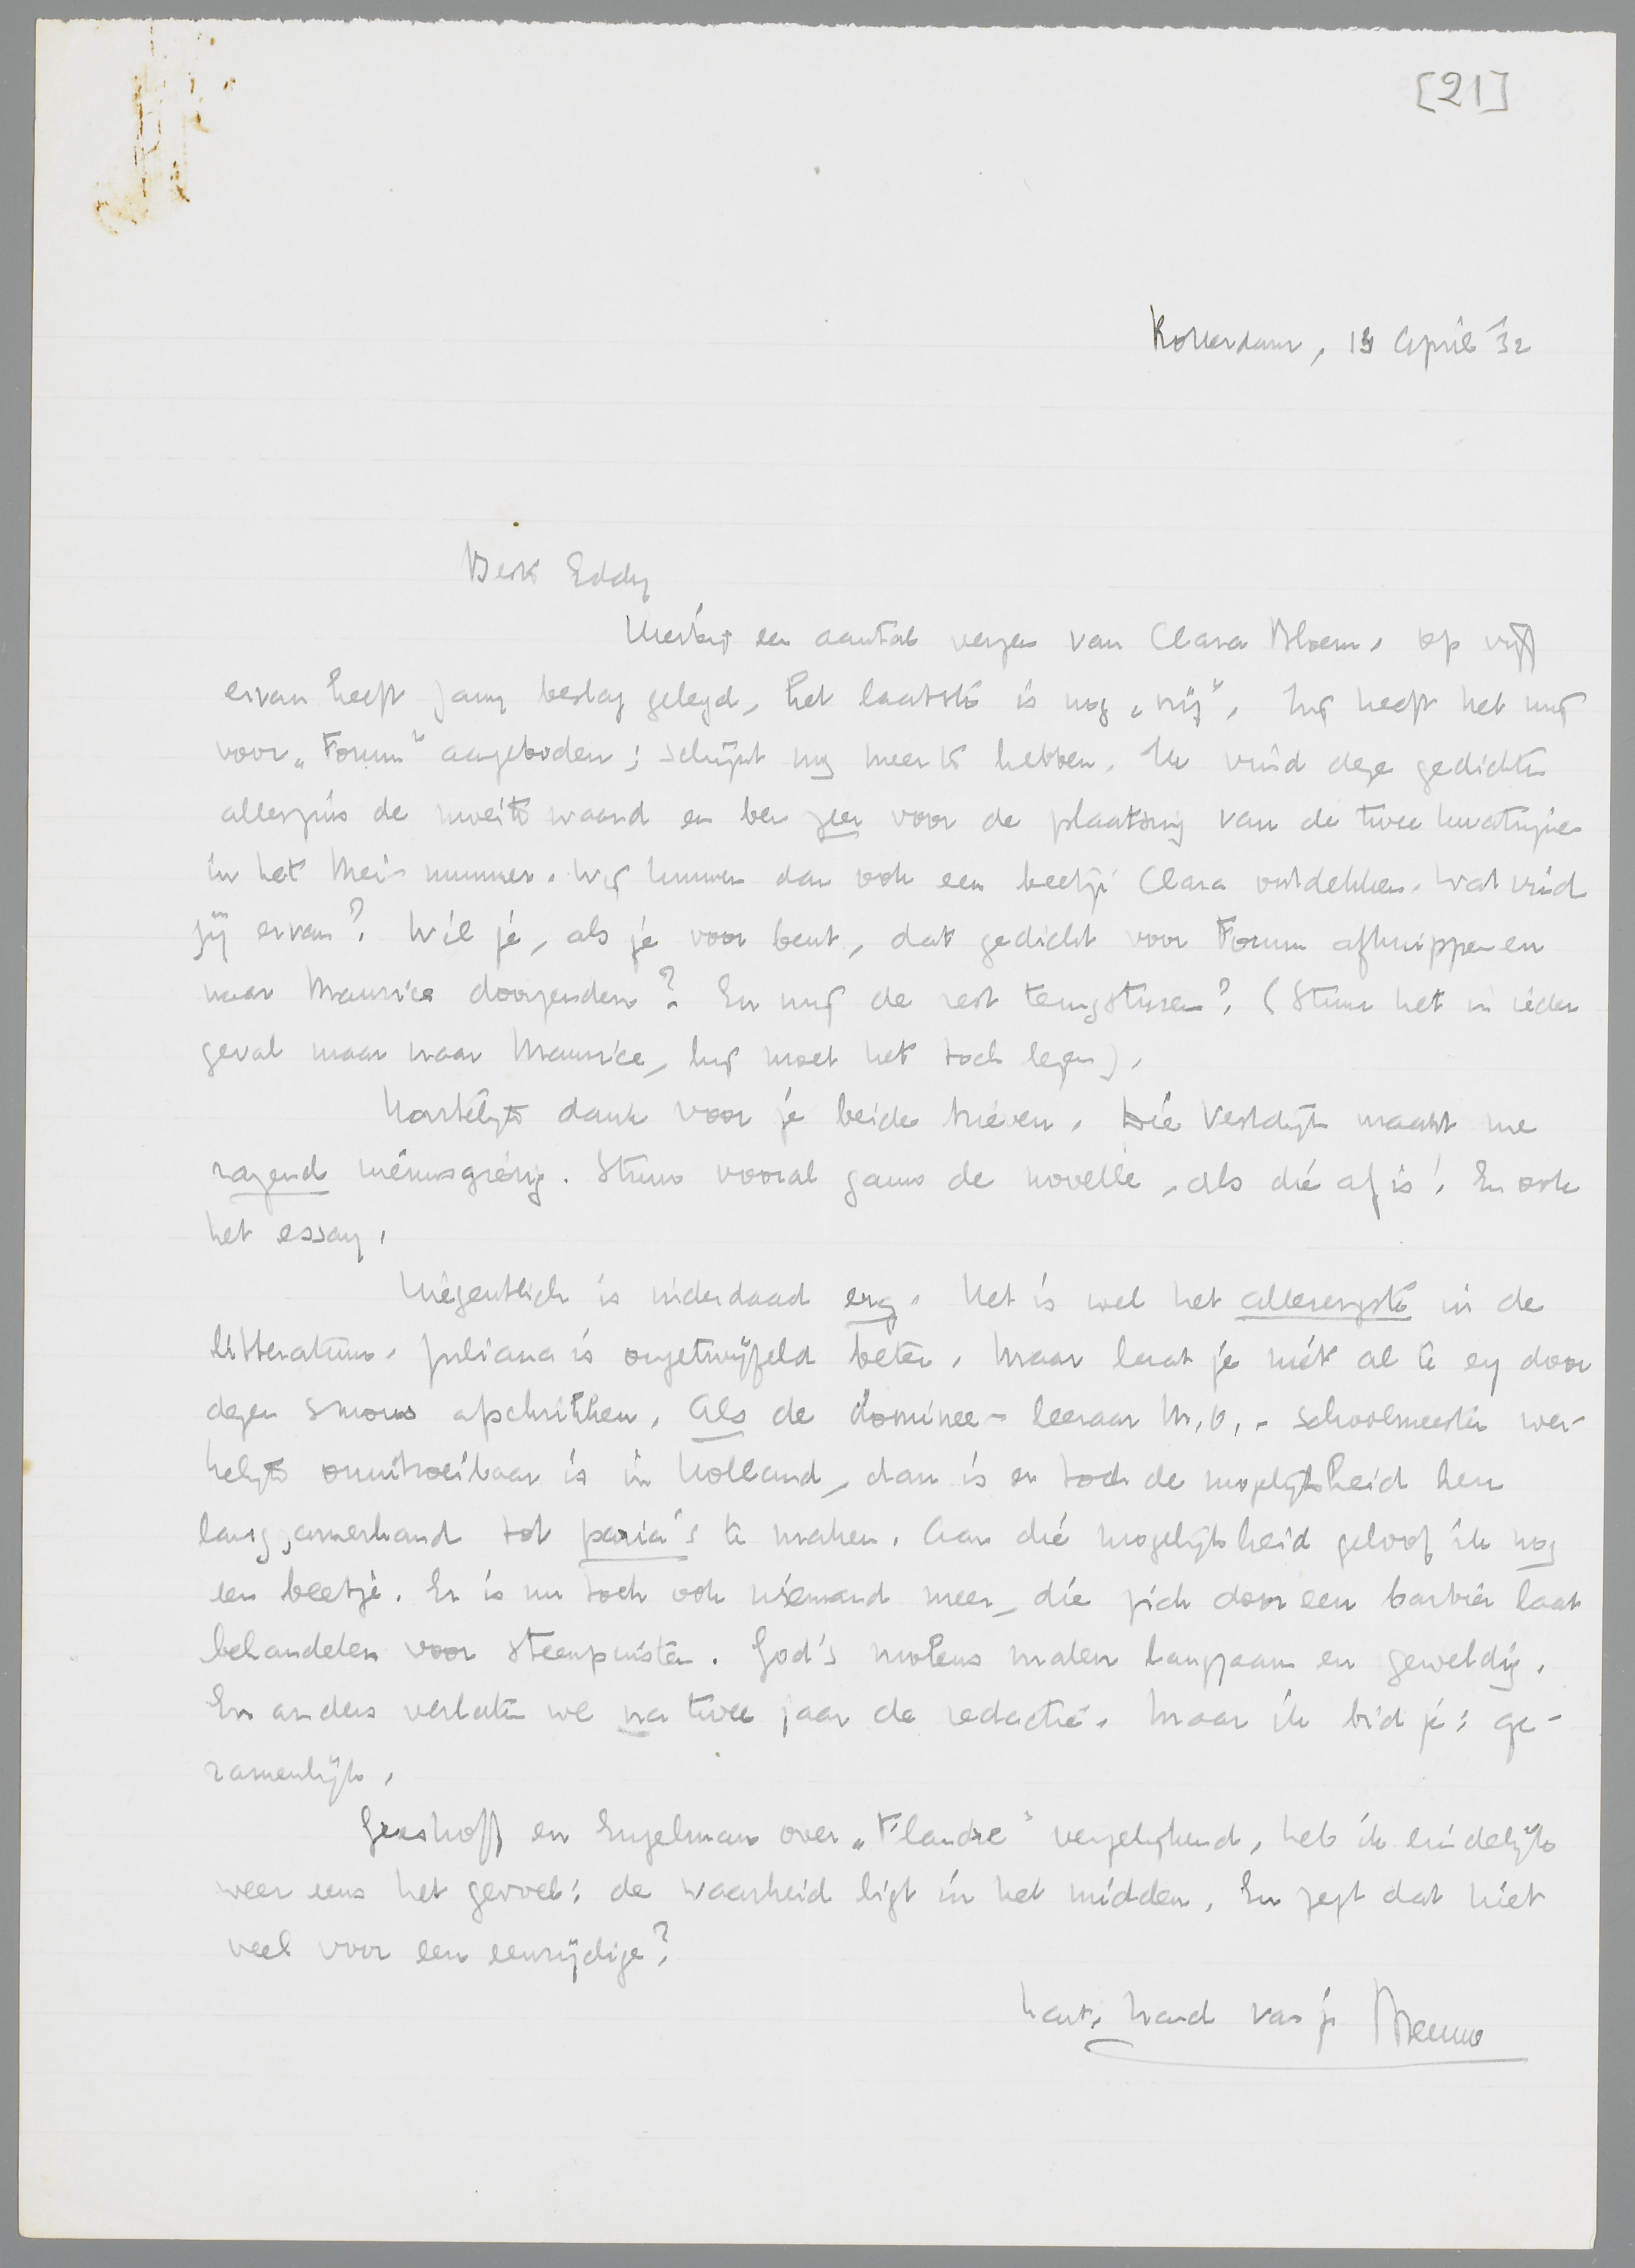 [21]
Rotterdam, 13 April '32
Beste Eddy
Hierbij een aantal verzen van Clara Bloem. Op vijf
ervan heeft Jany beslag gelegd, het laatste is nog „vrij”. Hij heeft het mij
voor „Forum” aangeboden; schijnt nog meer te hebben. Ik vind deze gedichten
allerzins de moeite waard en ben zeer voor de plaatsing van de twee kwatrijnen
in het Mei-nummer. Wij kunnen dan ook een beetje Clara ontdekken. Wat vind
jij ervan? Wil je, als je voor bent, dat gedicht voor Forum afknippen en
naar Maurice doorzenden? En mij de rest terugsturen? (Stuur het in ieder
geval maar naar Maurice, hij moet het toch lezen).
Hartelijk dank voor je beide brieven. Die Vestdijk maakt me
razend nieuwsgierig. Stuur vooral gauw de novelle, als die af is! En ook
het essay.
Uiegentlich is inderdaad erg. Het is wel het allerergste in de
litteratuur. Juliana is ongetwijfeld beter. Maar laat je niet al te erg door
dezen smous afschrikken. Als de dominee-leeraar M.O.-schoolmeester wer-
kelijk onuitroeibaar is in Holland, dan is er toch de mogelijkheid hen
langzamerhand tot paria's te maken. Aan die mogelijkheid geloof ik nog
een beetje. Er is nu toch ook niemand meer, die zich door een barbier laat
behandelen voor steenpuisten. God's molens malen langzaam en geweldig.
En anders verlaten we na twee jaar de redactie. Maar ik bid je: ge-
zamenlijk.
Greshoff en Engelman over „Flandre” vergelijkend, heb ik eindelijk
weer eens het gevoel: de waarheid ligt in het midden. En zegt dat niet
veel voor een eenzijdige?
hart. hand van je Menno